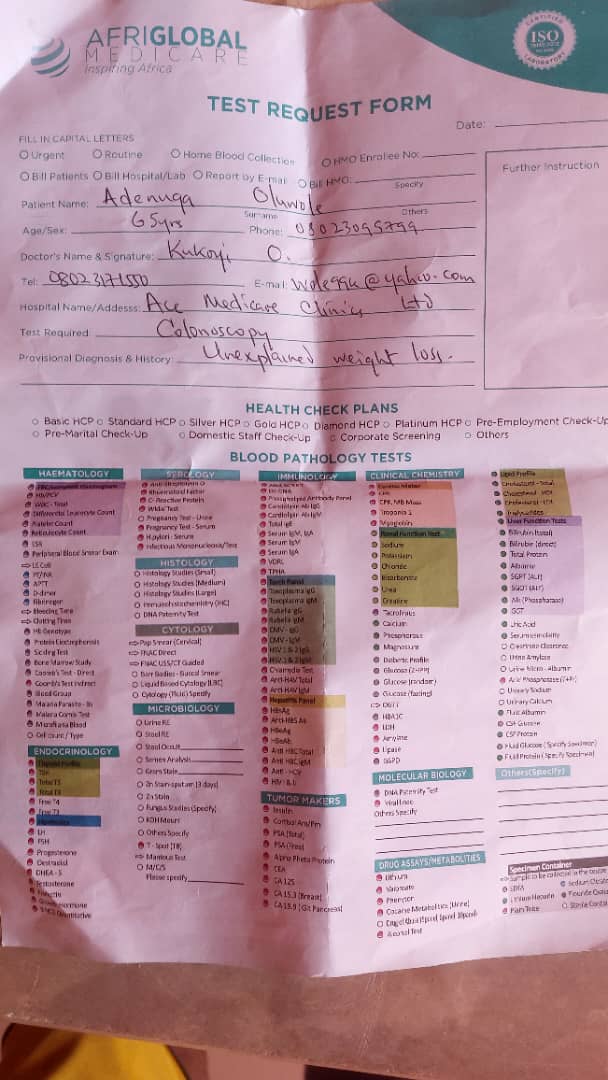 AFRIGLOBAL
MEDICARE
Inspiring Africa
CERTIFIED
ISO
LABORATORY
TEST REQUEST FORM
Date:
FILL IN CAPITAL LETTERS
Urgent Routine Home Blood Collection HMO Enrollee No:
Bill Patients Bill Hospital/Lab Report by E-mail Bill HMO:
Specify
Further Instruction
Patient Name: Adenuga Oluwole
Surname Others
Age/Sex: 65yrs Phone: 08023095799
Doctor's Name & Signature: Kukoyi O.
Tel: 08023171550 E-mail: woleggu@yahoo.com
Hospital Name/Addesss: Ace Medicare Clinics Ltd
Test Required: Colonoscopy
Provisional Diagnosis & History: Unexplained weight loss.
HEALTH CHECK PLANS
Basic HCP Standard HCP Silver HCP Gold HCP Diamond HCP Platinum HCP Pre-Employment Check-Up
Pre-Marital Check-Up Domestic Staff Check-Up Corporate Screening Others
BLOOD PATHOLOGY TESTS
HAEMATOLOGY
Hb/PCV
WBC - Total
Differential Leucocyte Count
Platelet Count
Reticulocyte Count
ESR
Peripheral Blood Smear Exam
LE Cell
PT/INR
APTT
D-dimer
Fibrinogen
Bleeding Time
Clotting Time
Hb Genotype
Protein Electrophoresis
Sickling Test
Bone Marrow Study
Coomb's Test - Direct
Coomb's Test Indirect
Blood Group
Malaria Parasite - Bs
Malaria Comb Test
Microfilaria Blood
Cell count / Type
ENDOCRINOLOGY
Thyroid Profile
TSH
Total T3
Free T4
Free T3
LH
FSH
Progesterone
Oestradiol
DHEA - S
Testosterone
Prolactin
Growth Hormone
B-HCG Quantitative
SEROLOGY
Rheumatoid Factor
C-Reactive Protein
Widal Test
Pregnancy Test - Urine
Pregnancy Test - Serum
H.pylori - Serum
Infectious Mononucleosis/Test
HISTOLOGY
Histology Studies (Small)
Histology Studies (Medium)
Histology Studies (Large)
Immunohistochemistry (IHC)
DNA Paternity Test
CYTOLOGY
Pap Smear (Cervical)
FNAC Direct
FNAC USS/CT Guided
Barr Bodies - Buccal Smear
Liquid Based Cytology (LBC)
Cytology (Fluid) Specify
MICROBIOLOGY
Urine RE
Stool RE
Stool Occult
Semen Analysis
Gram Stain
Zn Stain-sputum (3 days)
Zn Stain
Fungus Studies (Specify)
KOH Mount
Others Specify
T - Spot (TB)
Mantoux Test
M/C/S
Please specify
IMMUNOLOGY
Phospholipid Antibody Panel
Cardiolipin Ab IgG
Cardiolipin Ab IgM
Total IgE
Serum IgM, IgA
Serum IgM
Serum IgA
VDRL
TPHA
Torch Panel
Toxoplasma IgG
Toxoplasma IgM
Rubella IgG
Rubella IgM
CMV - IgG
CMV - IgM
HSV 1 & 2 IgG
HSV 1 & 2 IgM
Chlamydia Test
Anti-HAV Total
Anti-HAV IgM
Hepatitis Panel
HBsAg
Anti-HBS Ab
HBeAg
HBeAb
Anti HBC Total
Anti HBC IgM
Anti - HCV
HIV I & II
TUMOR MAKERS
Insulin
Cortisol Am/Pm
PSA (Total)
PSA (Free)
Alpha Pheto Protein
CEA
CA 125
CA 15.3 (Breast)
CA 19.9 (GIT Pancreas)
CLINICAL CHEMISTRY
Cardiac Maker
CPK
CPK, MB Mass
Troponin I
Myoglobin
Renal Function Test
Sodium
Potassium
Chloride
Bicarbonate
Urea
Creatine
Tacrolimus
Calcium
Phosphorous
Magnesium
Diabetic Profile
Glucose (2HPP)
Glucose (random)
Glucose (fasting)
OGTT
HBA1C
LDH
Amylase
Lipase
G6PD
MOLECULAR BIOLOGY
DNA Paternity Test
Viral Load
Others Specify
DRUG ASSAYS/METABOLITIES
Lithium
Valproate
Phenytoin
Cocaine Metabolites (Urine)
Alcohol Test
Lipid Profile
Cholesterol - Total
Cholesterol - HDL
Cholesterol - LDL
Triglycerides
Liver Function Tests
Bilirubin (total)
Bilirubin (direct)
Total Protein
Albumin
SGPT (ALT)
SGOT (AST)
Alk (Phosphatase)
GGT
Uric Acid
Serum osmolality
Creatinine Clearance
Urine Amylase
Urine Micro - Albumin
Acid Phosphatase (T+P)
Urinary Sodium
Urinary Calcium
Fluid Albumin
CSF Glucose
CSF Protein
Fluid Glucose (Specify Specimen)
Fluid Protein (Specify Specimen)
Others(Specify)
Specimen Container
EDTA
Lithium Heparin
Plain Tube
Sodium Citrate